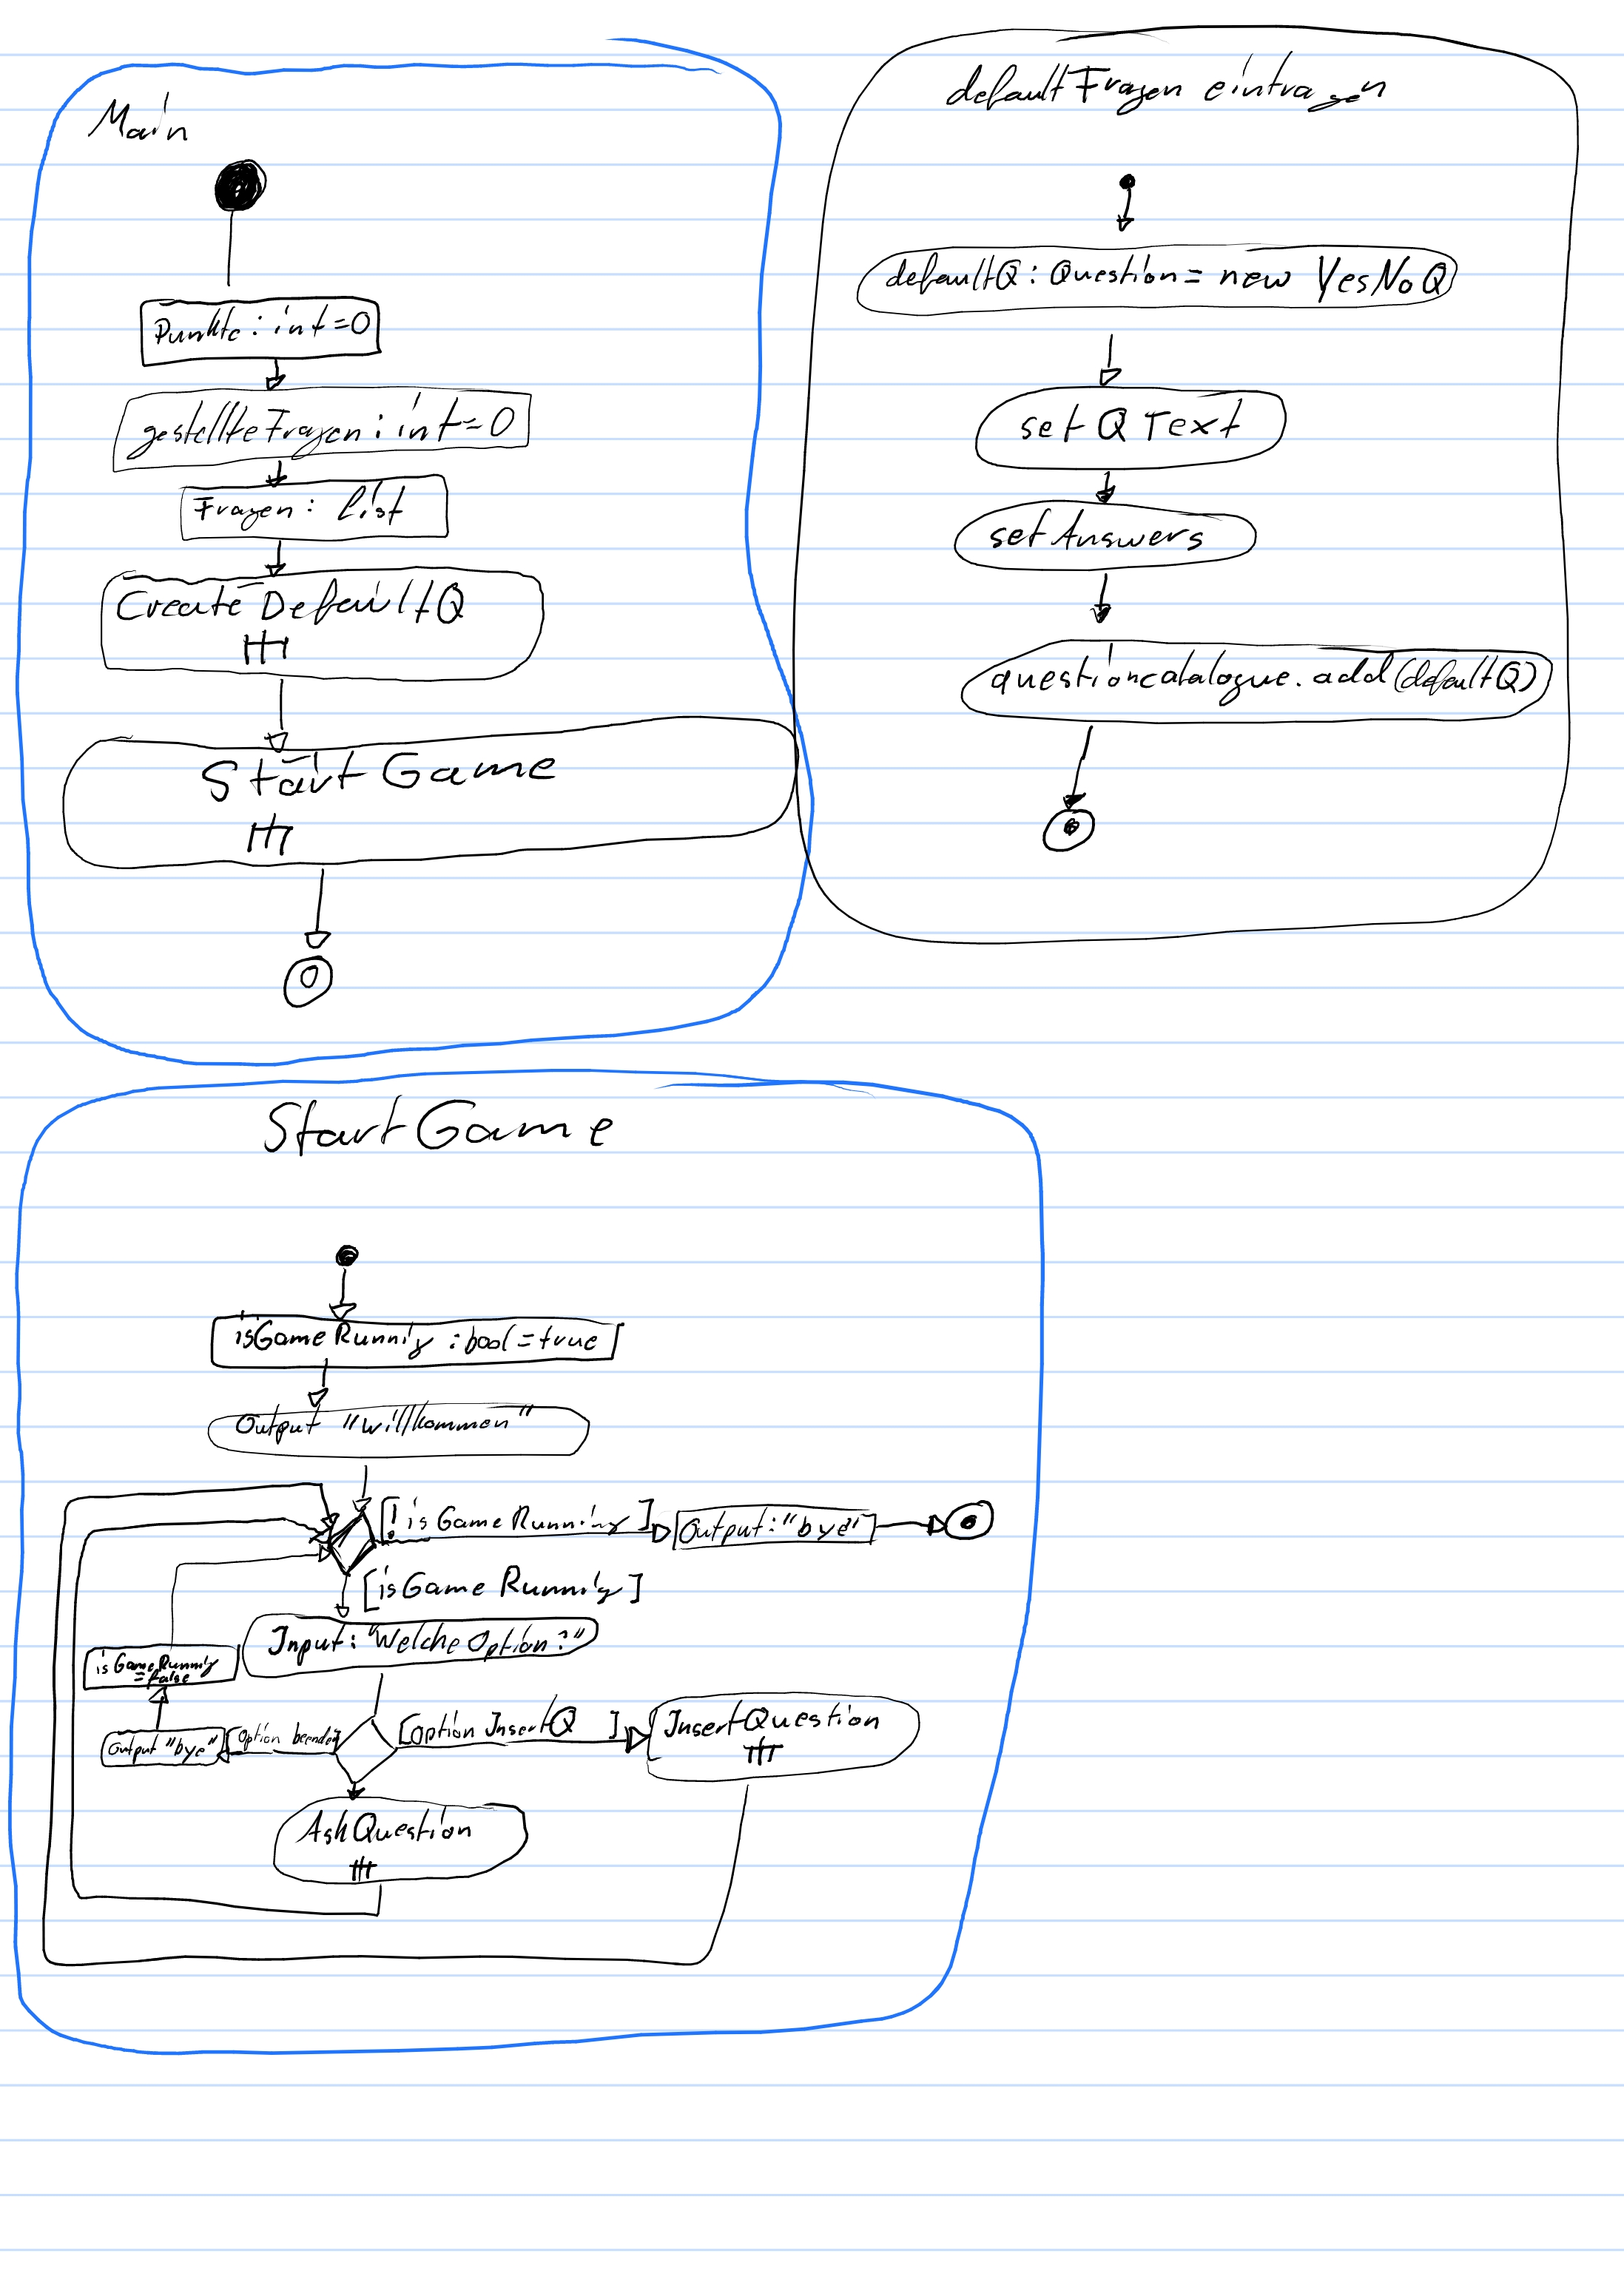 Main
Punkte: int=0
gestellteFragen: int=0
Fragen: list
Create DefaultQ
Start Game
defaultFragen eintragen
defaultQ: Question = new YesNoQ
set Q Text
setAnswers
questioncatalogue.add(defaultQ)
StartGame
isGameRunning :bool=true
Output "Willkommen"
[! isGameRunning]
Output: "bye"
[isGameRunning]
Input: "Welche Option?"
isGameRunning
=false
Output "bye"
[Option beenden]
[option InsertQ ]
InsertQuestion
AskQuestion